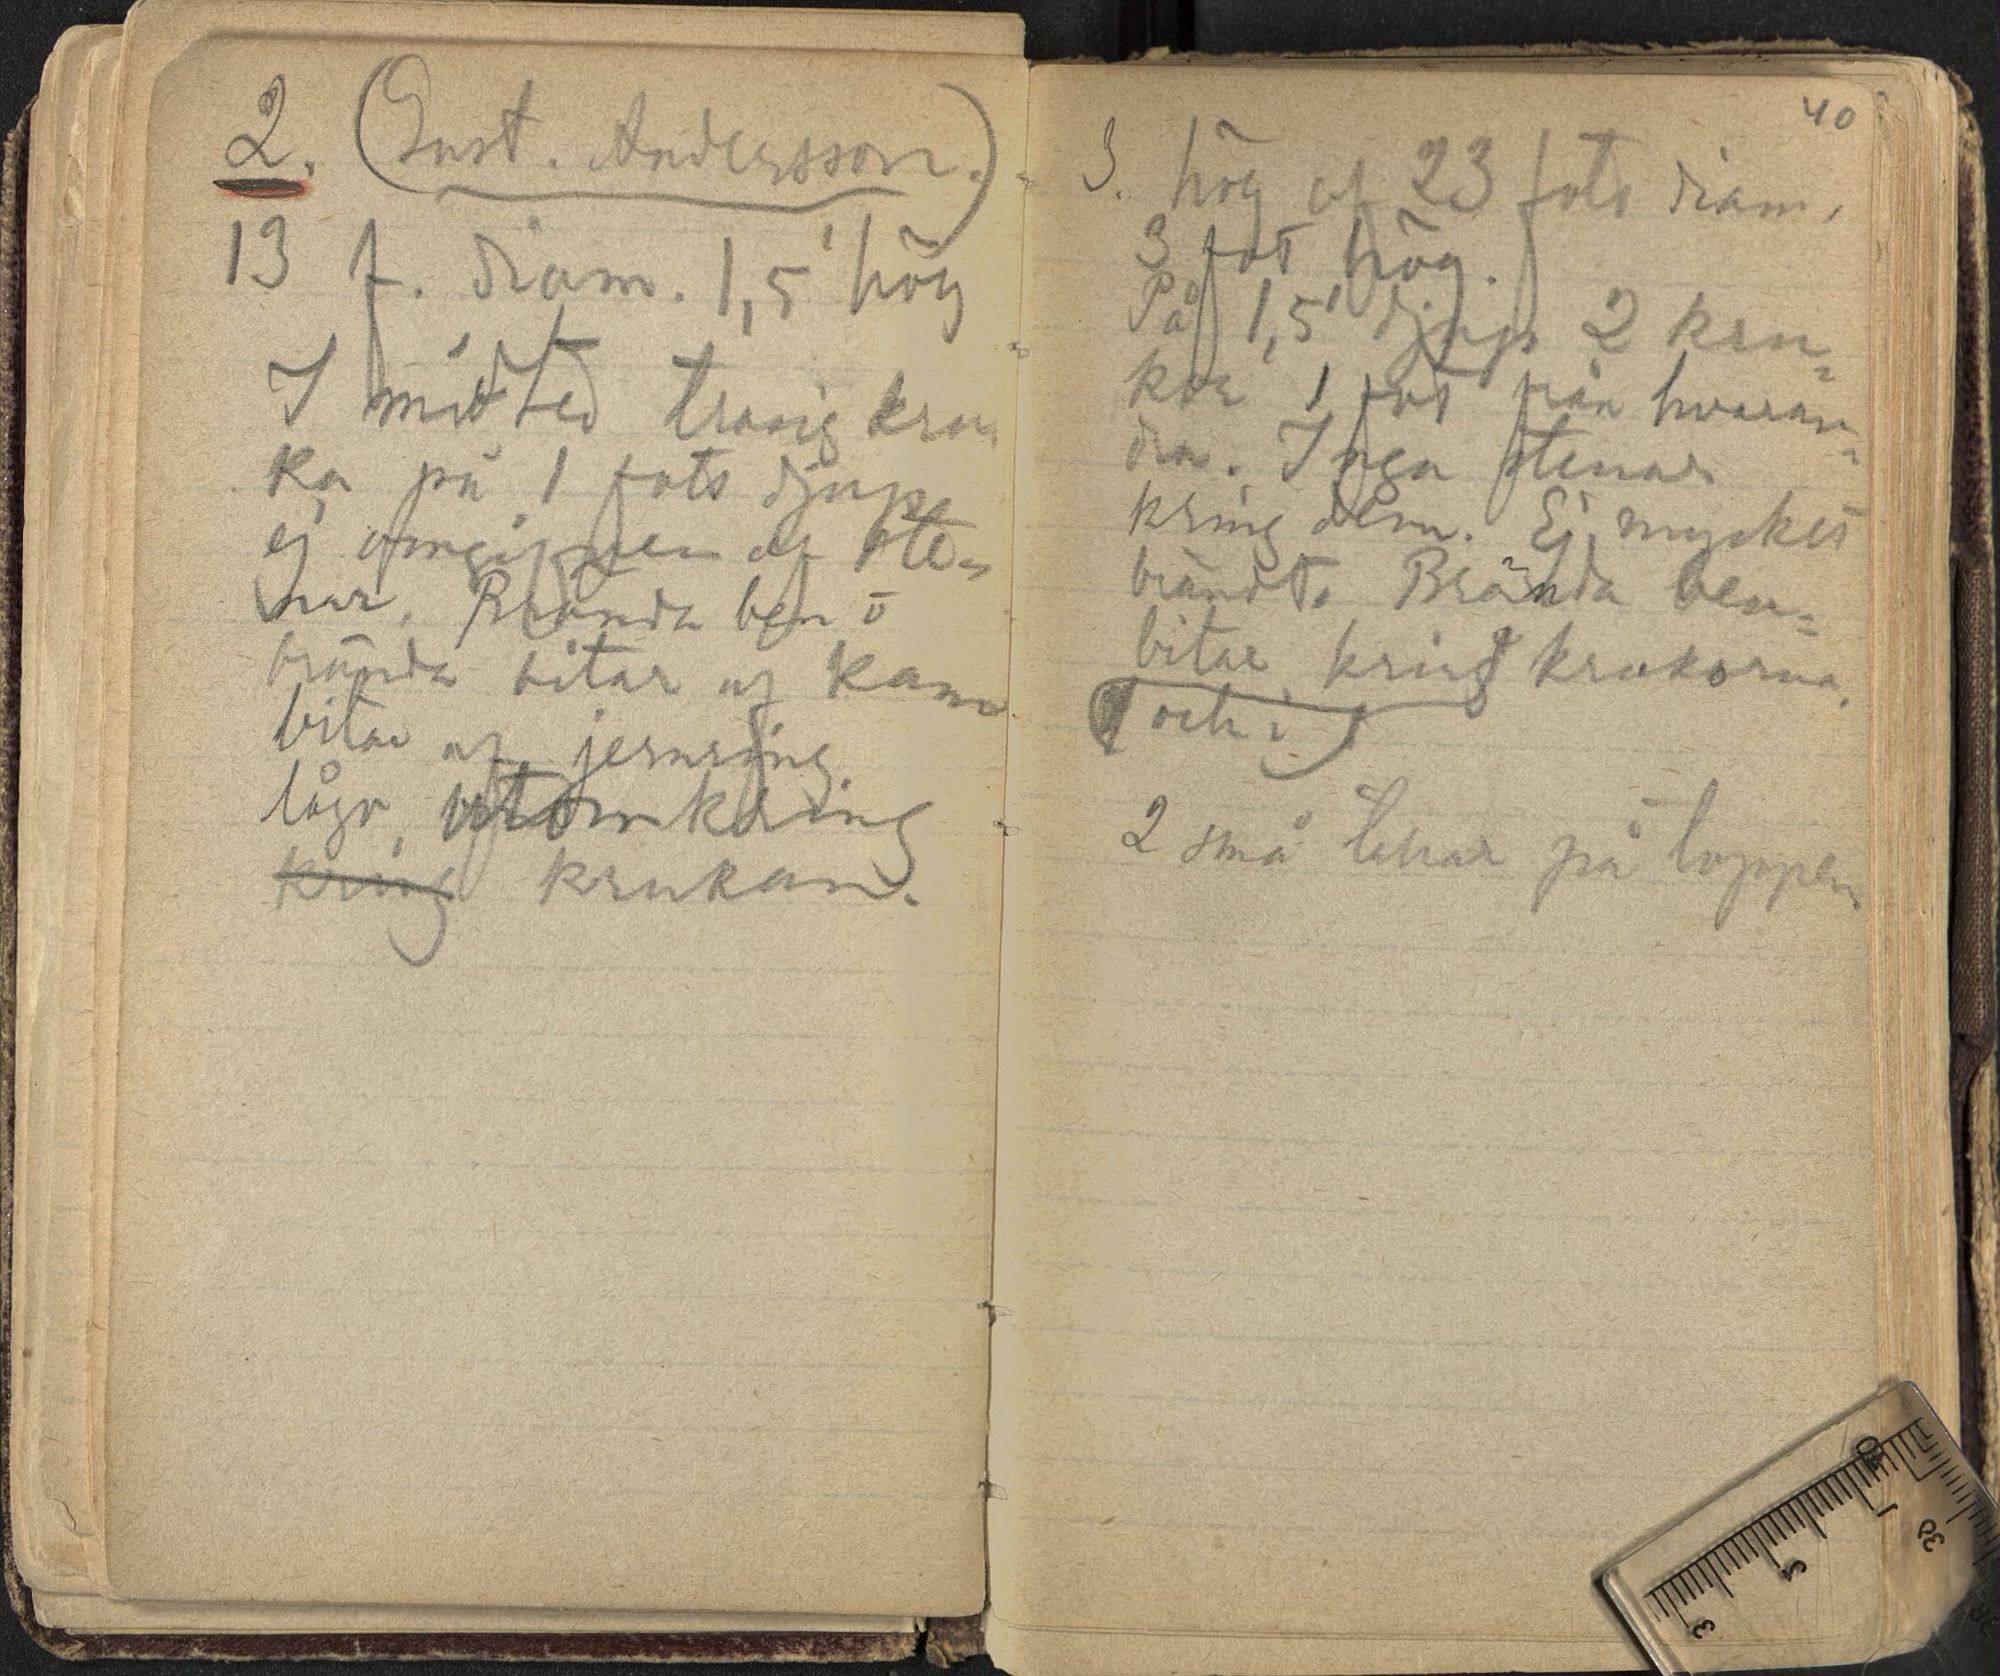 2. (Gust. Andersson.)
13 f. diam. 1,5' hög
I midten trasig kru
ka på 1 fots djup
ej omgifven af ste-
nar. Brända ben o
brända bitar af kam
bitar af jernring.
lågo utomkring
kring krukan.
40
3. hög af 23 fots diam.
3 fot hög.
På 1,5' djup 2 kru=
kor 1 fot från hvaran=
dra. Inga stenar
kring dem. Ej mycket
brändt. Brända ben=
bitar kring krukorna.
(och i)
2 små stenar på toppen.